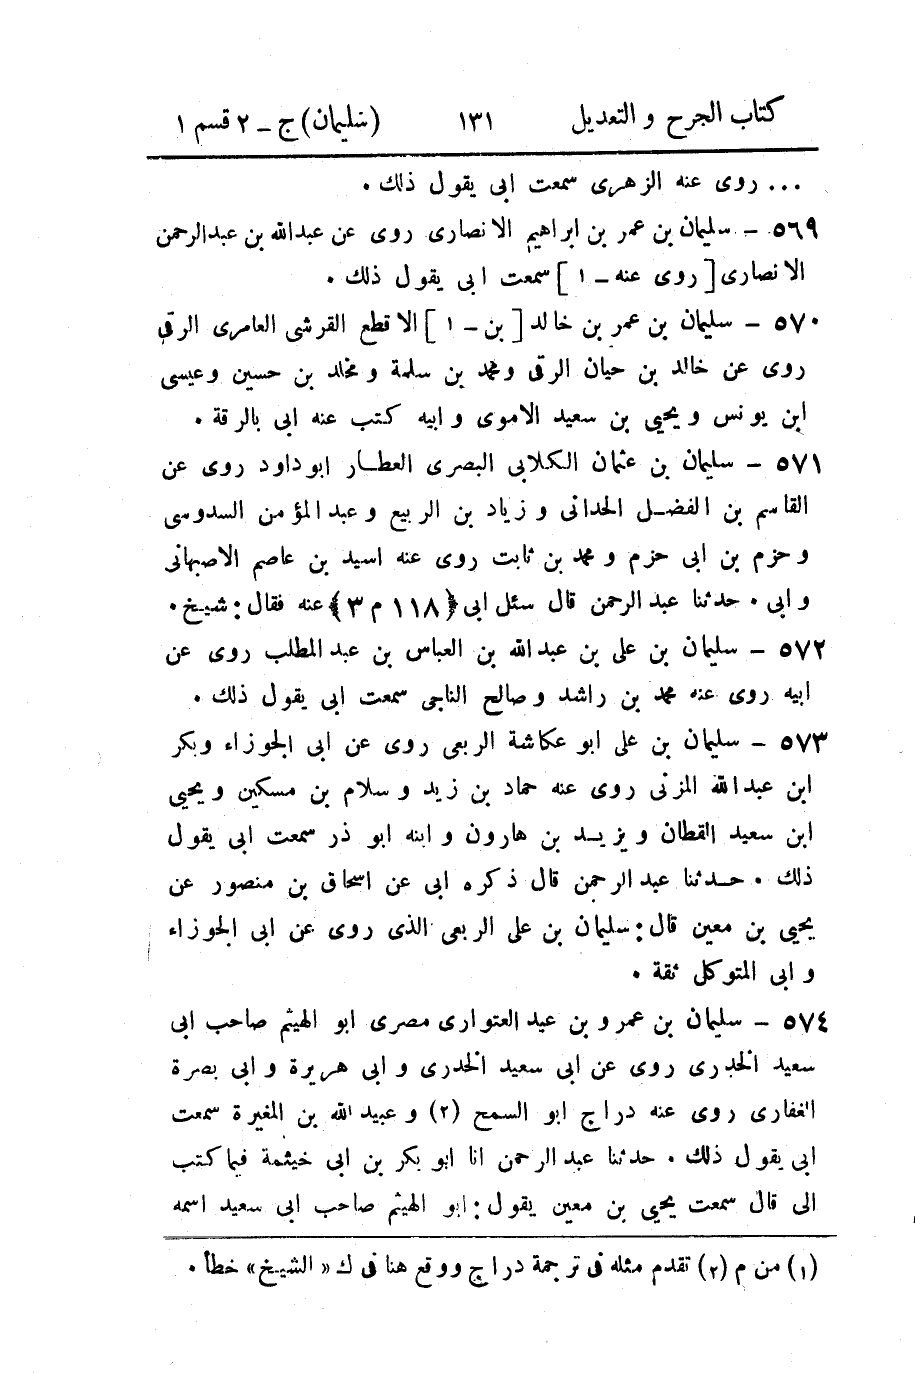 كتاب الجرح و التعديل ١٣١ (سليمان) ج – ٢ قسم ١
... روى عنه الزهرى سمعت ابى يقول ذلك .
٥٦٩ – سليمان بن عمر بن ابراهيم الانصارى روى عن عبدالله بن عبدالرحمن
الانصارى [روى عنه – ١] سمعت ابى يقول ذلك .
٥٧٠ – سليمان بن عمر بن خالد [بن – ١] الاقطع القرشى العامرى الرقى
روى عن خالد بن حيان الرقى ومحمد بن سلمة و مخلد بن حسين وعيسى
ابن يونس و يحيى بن سعيد الاموى و ابيه كتب عنه ابى بالرقة .
٥٧١ – سليمان بن عثمان الكلابى البصرى العطار ابوداود روى عن
القاسم بن الفضل الحدانى و زياد بن الربيع و عبد المؤمن السدوسى
و حزم بن ابى حزم و محمد بن ثابت روى عنه اسيد بن عاصم الاصبهانى
و ابى . حدثنا عبد الرحمن قال سئل ابى ﴿١١٨ م ٣﴾ عنه فقال: شيخ .
٥٧٢ – سليمان بن على بن عبد الله بن العباس بن عبد المطلب روى عن
ابيه روى عنه محمد بن راشد و صالح الناجى سمعت ابى يقول ذلك .
٥٧٣ – سليمان بن على ابو عكاشة الربعى روى عن ابى الجوزاء وبكر
ابن عبدالله المزنى روى عنه حماد بن زيد و سلام بن مسكين و يحيى
ابن سعيد القطان و يزيد بن هارون و ابنه ابو ذر سمعت ابى يقول
ذلك . حدثنا عبد الرحمن قال ذكره ابى عن اسحاق بن منصور عن
يحيى بن معين قال: سليمان بن على الربعى الذى روى عن ابى الجوزاء
و ابى المتوكل ثقة .
٥٧٤ – سليمان بن عمرو بن عبد العتوارى مصرى ابو الهيثم صاحب ابى
سعيد الخدرى روى عن ابى سعيد الخدرى و ابى هريرة و ابى بصرة
الغفارى روى عنه دراج ابو السمح (٢) و عبيد الله بن المغيرة سمعت
ابى يقول ذلك . حدثنا عبد الرحمن انا ابو بكر بن ابى خيثمة فيما كتب
الى قال سمعت يحيى بن معين يقول: ابو الهيثم صاحب ابى سعيد اسمه
(١) من م (٢) تقدم مثله فى ترجمة دراج ووقع هنا فى ك «الشيخ» خطأ .